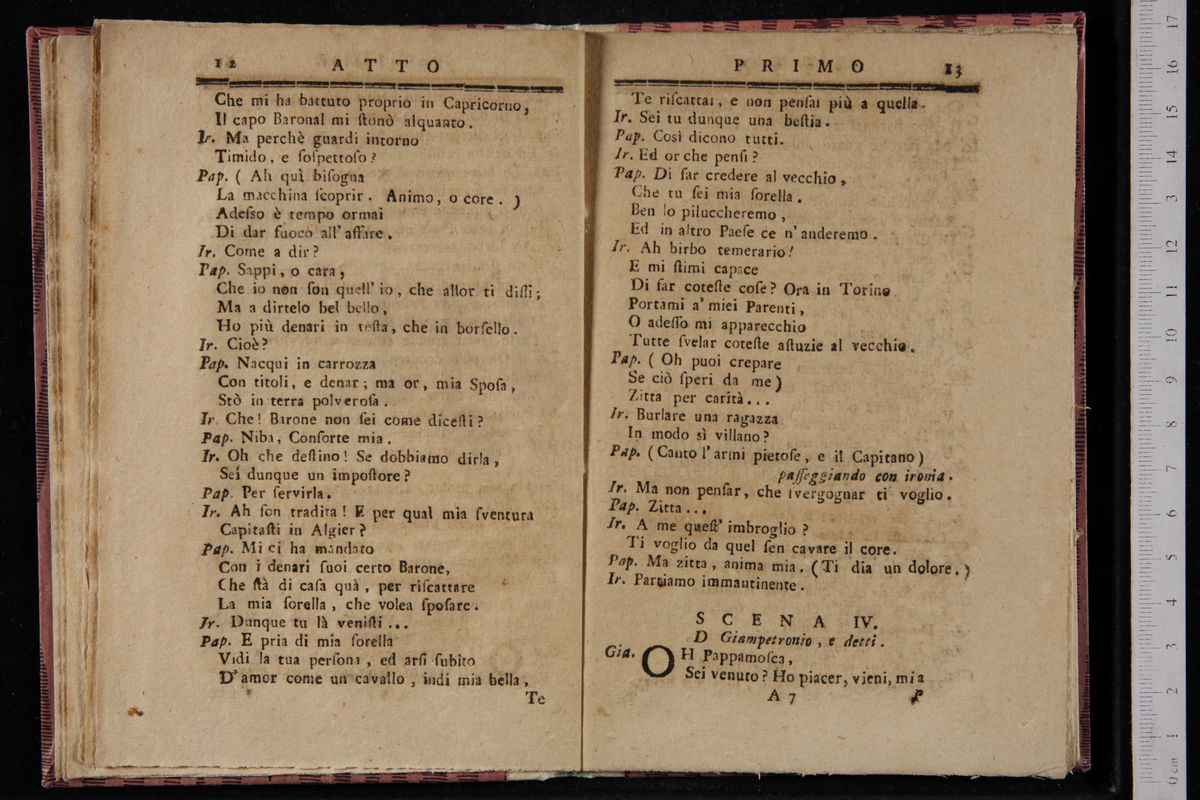 12 ATTO
Che mi ha battuto proprio in Capricorno,
Il capo Baronal mi ſtonò alquanto.
Ir. Ma perchè guardi intorno
Timido, e ſoſpettoſo?
Pap. ( Ah quì biſogna
La macchina ſcoprir. Animo, o core. )
Adeſso è tempo ormai
Di dar fuoco all' affare.
Ir. Come a dir?
Pap. Sappi, o cara,
Che io non ſon quell' io, che allor ti diſſi;
Ma a dirtelo bel bello,
Ho più denari in teſta, che in borſello.
Ir. Cioè?
Pap. Nacqui in carrozza
Con titoli, e denar; ma or, mia Spoſa,
Stò in terra polveroſa.
Ir. Che! Barone non ſei come diceſti?
Pap. Niba, Conſorte mia.
Ir. Oh che deſtino! Se dobbiamo dirla,
Sei dunque un impoſtore?
Pap. Per ſervirla.
Ir. Ah ſon tradita! E per qual mia ſventura
Capitaſti in Algier?
Pap. Mi ci ha mandato
Con i denari ſuoi certo Barone,
Che ſtà di caſa quà, per riſcattare
La mia ſorella, che volea ſpoſare.
Ir. Dunque tu là veniſti ...
Pap. E pria di mia ſorella
Vidi la tua perſona, ed arſi ſubito
D'amor come un cavallo, indi mia bella,
Te
PRIMO 13
Te riſcattai, e non penſai più a quella.
Ir. Sei tu dunque una beſtia.
Pap. Così dicono tutti.
Ir. Ed or che penſi?
Pap. Di far credere al vecchio,
Che tu ſei mia ſorella.
Ben lo piluccheremo,
Ed in altro Paeſe ce n'anderemo.
Ir. Ah birbo temerario!
E mi ſtimi capace
Di far coteſte coſe? Ora in Torino
Portami a' miei Parenti,
O adeſſo mi apparecchio
Tutte ſvelar coteſte aſtuzie al vecchio.
Pap. ( Oh puoi crepare
Se ciò ſperi da me)
Zitta per carità...
Ir. Burlare una ragazza
In modo sì villano?
Pap. (Canto l'armi pietoſe, e il Capitano)
paſſeggiando con ironia.
Ir. Ma non penſar, che ſvergognar ti voglio.
Pap. Zitta...
Ir. A me queſt' imbroglio?
Ti voglio da quel ſen cavare il core.
Pap. Ma zitta, anima mia. (Ti dia un dolore.)
Ir. Partiamo immantinente.
SCENA IV.
D Giampetronio, e detti.
Gia. OH Pappamoſca,
Sei venuto? Ho piacer, vieni, mia
A 7 P